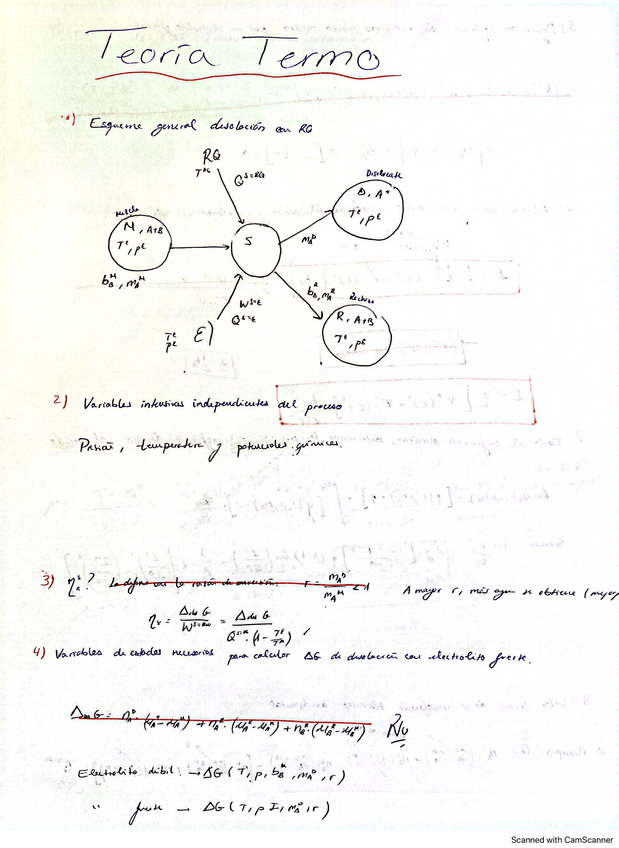 Teoría Termo
1) Esquema general disolución con RQ
RQ
T^RQ
Q^S=RQ
Disolvente
D, A*
T^E, p^E
Mezcla
M, A+B
T^E, p^E
b_B^M, m_A^M
S
m_A^D
b_B^R, m_A^R
Rechazo
R, A+B
T^E, p^E
W^S=E
Q^S=E
T^E
p^E
E)
2) Variables intensivas independientes del proceso
Presión, temperatura y potenciales químicos.
3) η_x^s? r = m_A^D / m_A^M < 1 A mayor r, más agua se obtiene (mayor
η_x = Δ_dis G / W^S=RW = Δ_dis G / Q^S=RK · (1 - T^E/T^RK) ✓
4) Variables de estados necesarios para calcular ΔG de disolución con electrolito fuerte.
Δ_dis G = n_A^D · (μ_A^* - μ_A^M) + n_A^R · (μ_A^R - μ_A^M) + n_B^R · (μ_B^R - μ_B^M)
Electrolito débil → ΔG (T, p, b_B^M, m_A^D, r)
" fuerte → ΔG (T, p I, m_A^D, r)
Scanned with CamScanner